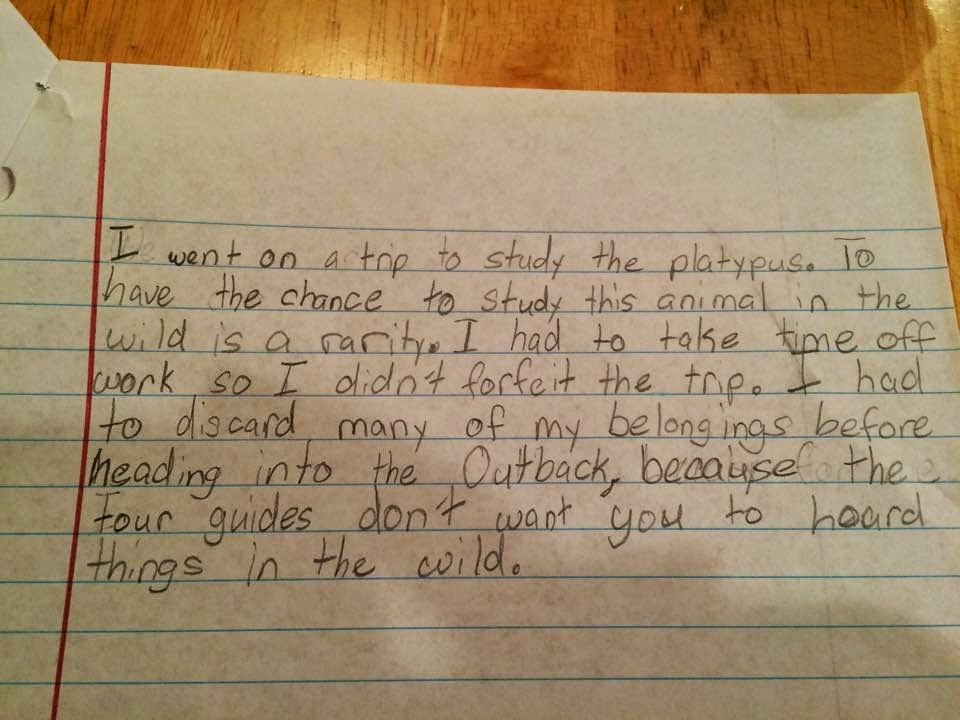 I went on a trip to study the platypus. To
have the chance to study this animal in the
wild is a rarity. I had to take time off
work so I didn't forfeit the trip. I had
to discard many of my belongings before
heading into the Outback, because the
tour guides don't want you to hoard
things in the wild.